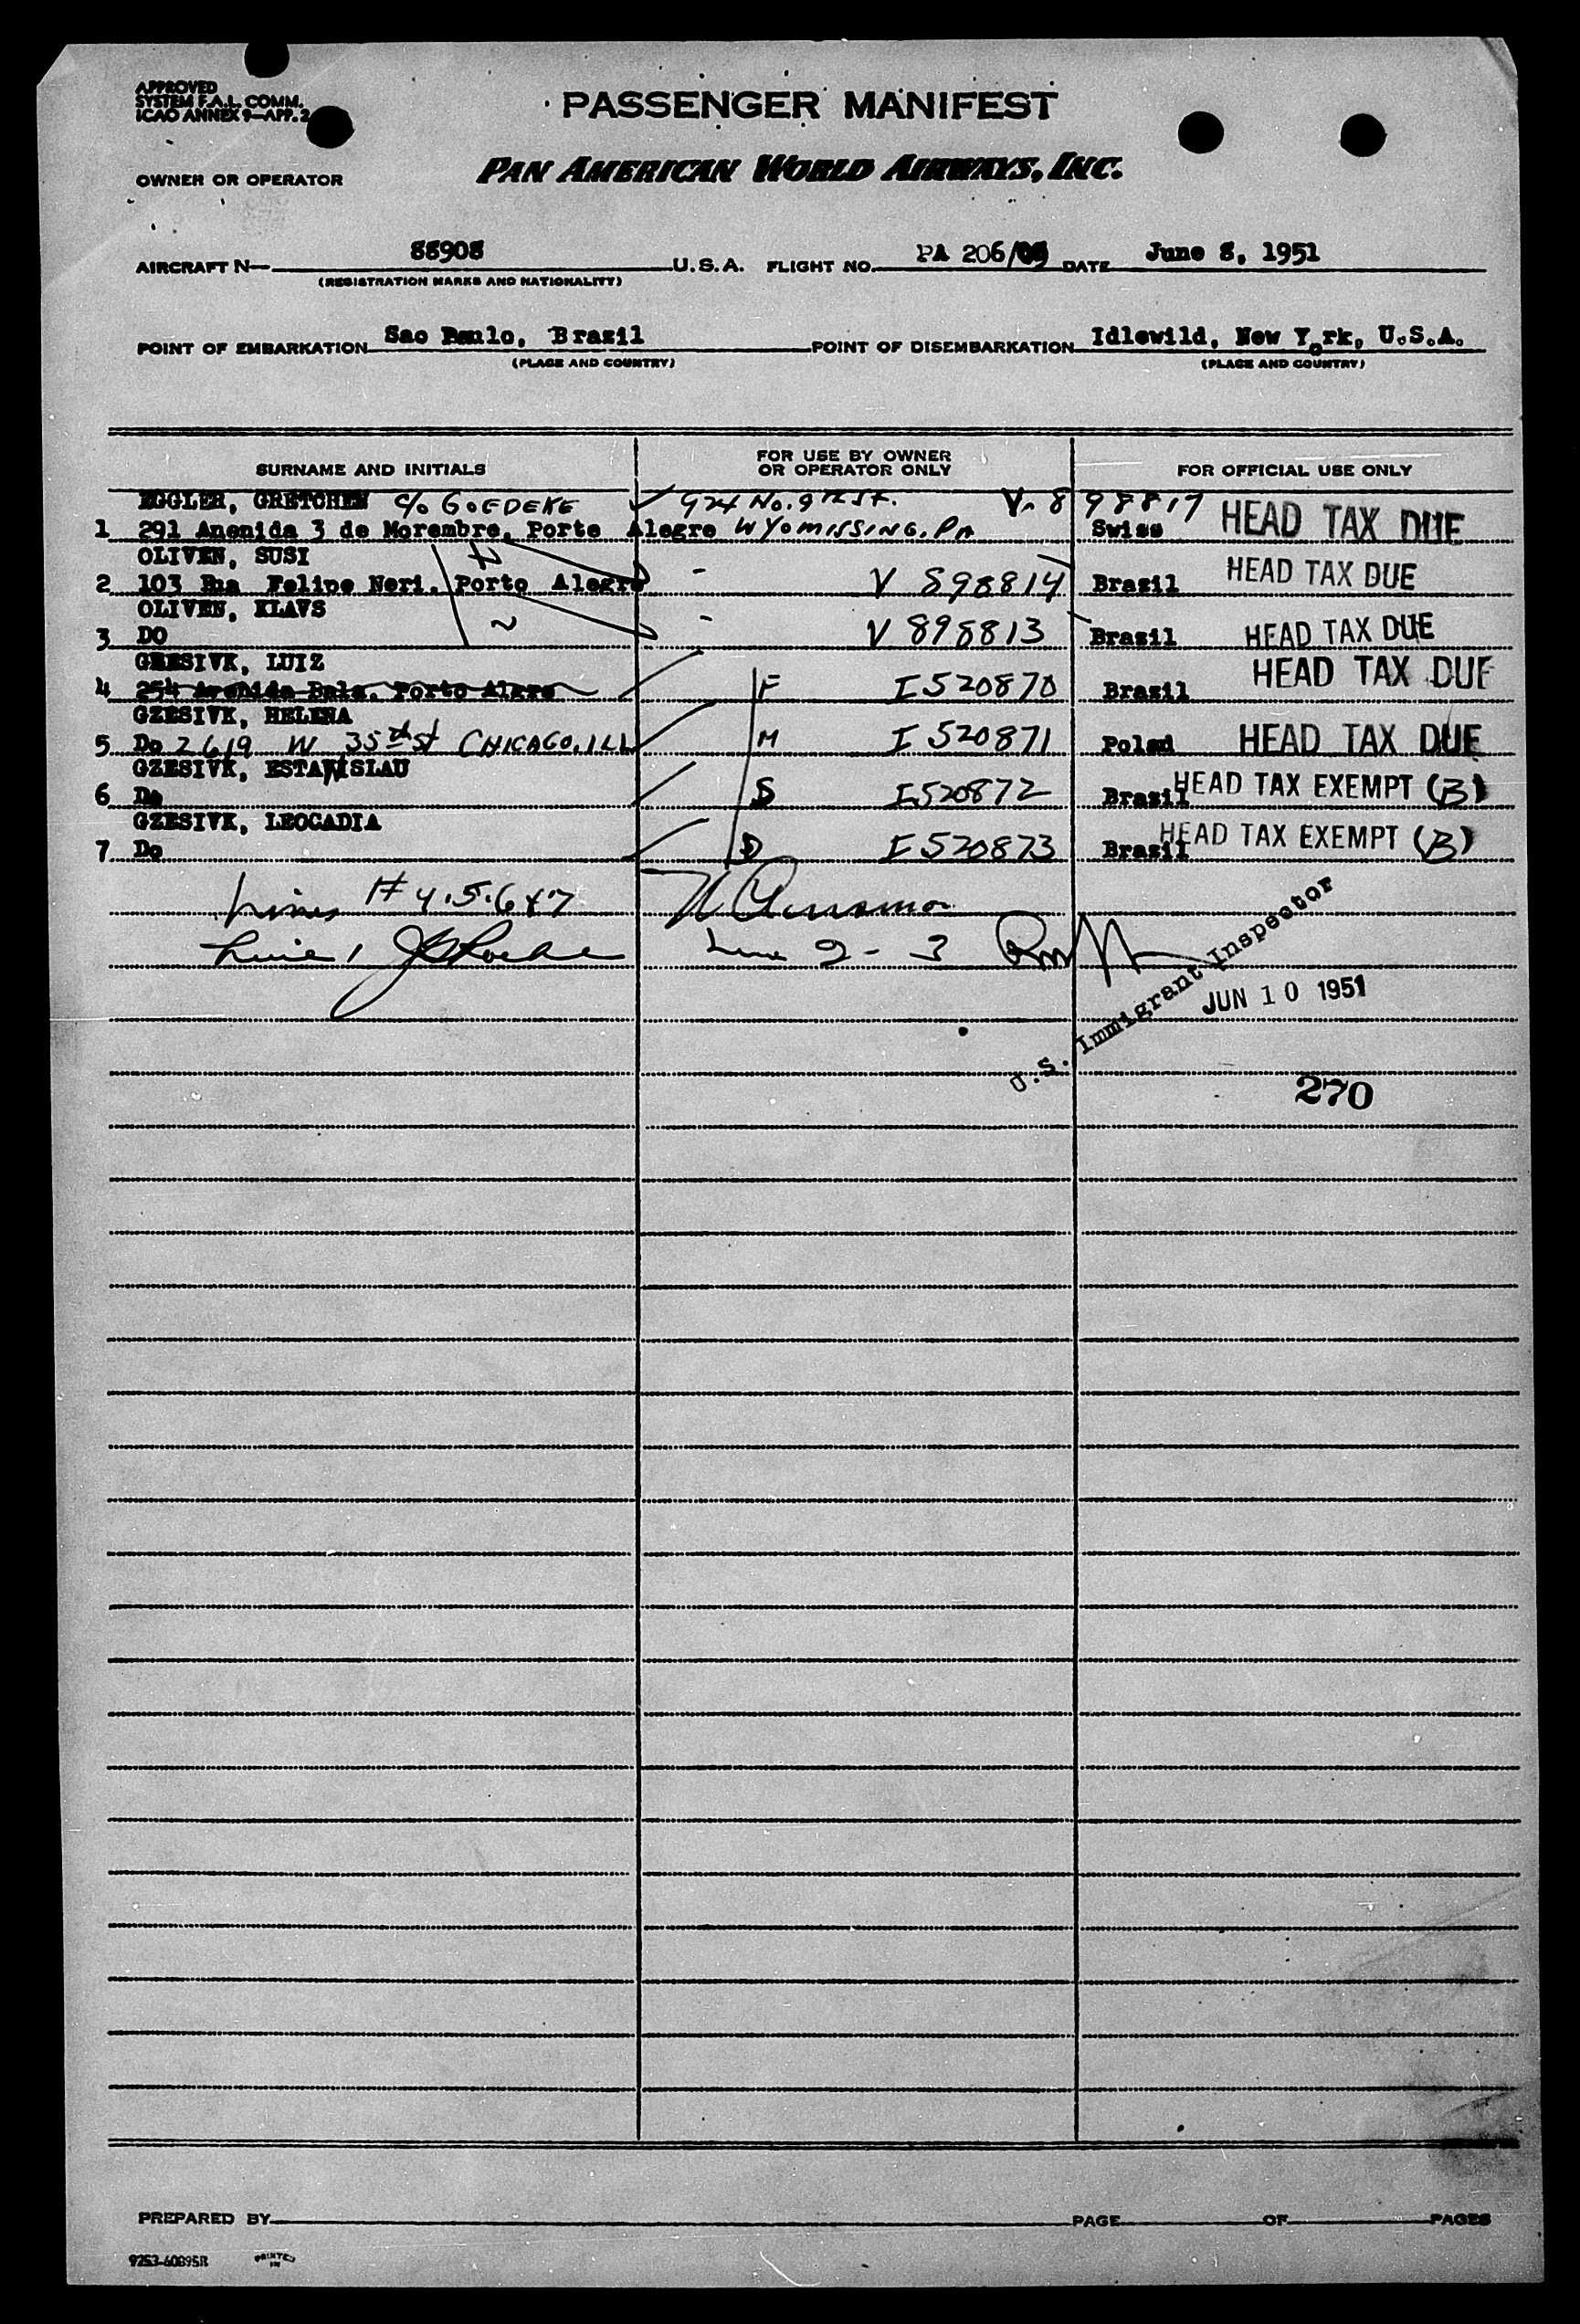 APPROVED
SYSTEM F.A.L. COMM.
ICAO ANNEX 9-APP. 2
PASSENGER MANIFEST
OWNER OR OPERATOR
PAN AMERICAN WORLD AIRWAYS, INC.
AIRCRAFT N— 88908 U.S.A. FLIGHT NO. PA 206/ DATE June 8, 1951
(REGISTRATION MARKS AND NATIONALITY)
POINT OF EMBARKATION Sao Paulo, Brazil POINT OF DISEMBARKATION Idlewild, New York, U.S.A.
(PLACE AND COUNTRY) (PLACE AND COUNTRY)
SURNAME AND INITIALS FOR USE BY OWNER OR OPERATOR ONLY FOR OFFICIAL USE ONLY
EGGLER, GRETCHEN C/O GOEDEKE 924 No. 9th St. V. 898817
1 291 Anenida 3 de Morembre, Porto Alegre WYOMISSING, PA Swiss HEAD TAX DUE
OLIVEN, SUSI
2 103 Rua Felipe Neri, Porto Alegre - V 898814 Brazil HEAD TAX DUE
OLIVEN, KLAVS
3 DO - V 898813 Brazil HEAD TAX DUE
GRESIVK, LUIZ
4 254 Avenida Bala, Porto Algre F I 520870 Brazil HEAD TAX DUE
GZESIVK, HELENA
5 Do 2619 W 35th St CHICAGO, ILL M I 520871 Poland HEAD TAX DUE
GZESIVK, ESTANISLAU
6 Do S I520872 Brazil HEAD TAX EXEMPT (B)
GZESIVK, LEOCADIA
7 Do D I 520873 Brazil HEAD TAX EXEMPT (B)
Lines # 4.5.6 & 7
Line 1 Line 2 - 3
U.S. Immigrant Inspector
JUN 10 1951
270
PREPARED BY PAGE OF PAGES
9253-60895R PRINTED IN